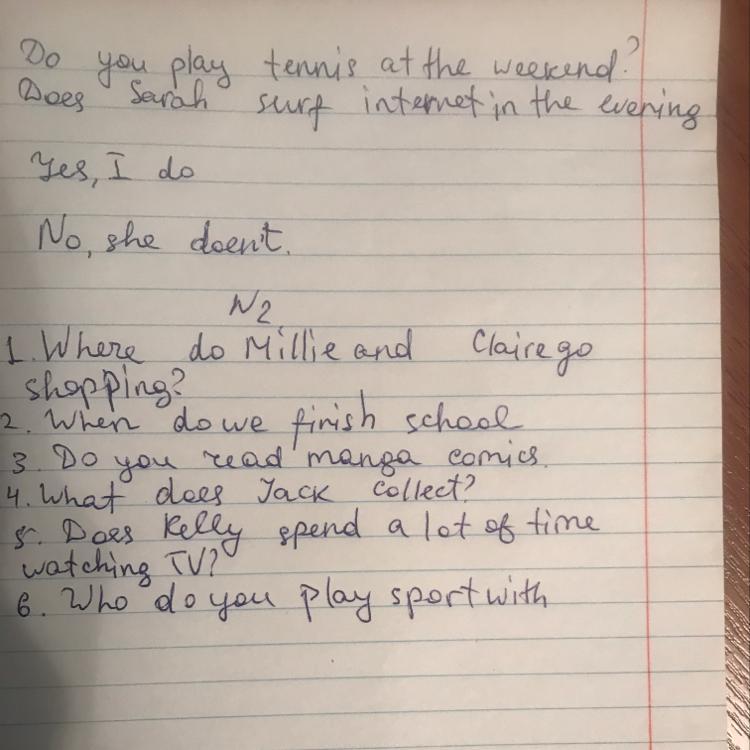 Do you play tennis at the weekend?
Does Sarah surf internet in the evening
Yes, I do
No, she doen't.
N2
1. Where do Millie and Claire go
shopping?
2. When do we finish school
3. Do you read manga comics.
4. What does Jack collect?
5. Does Kelly spend a lot of time
watching TV?
6. Who do you play sport with